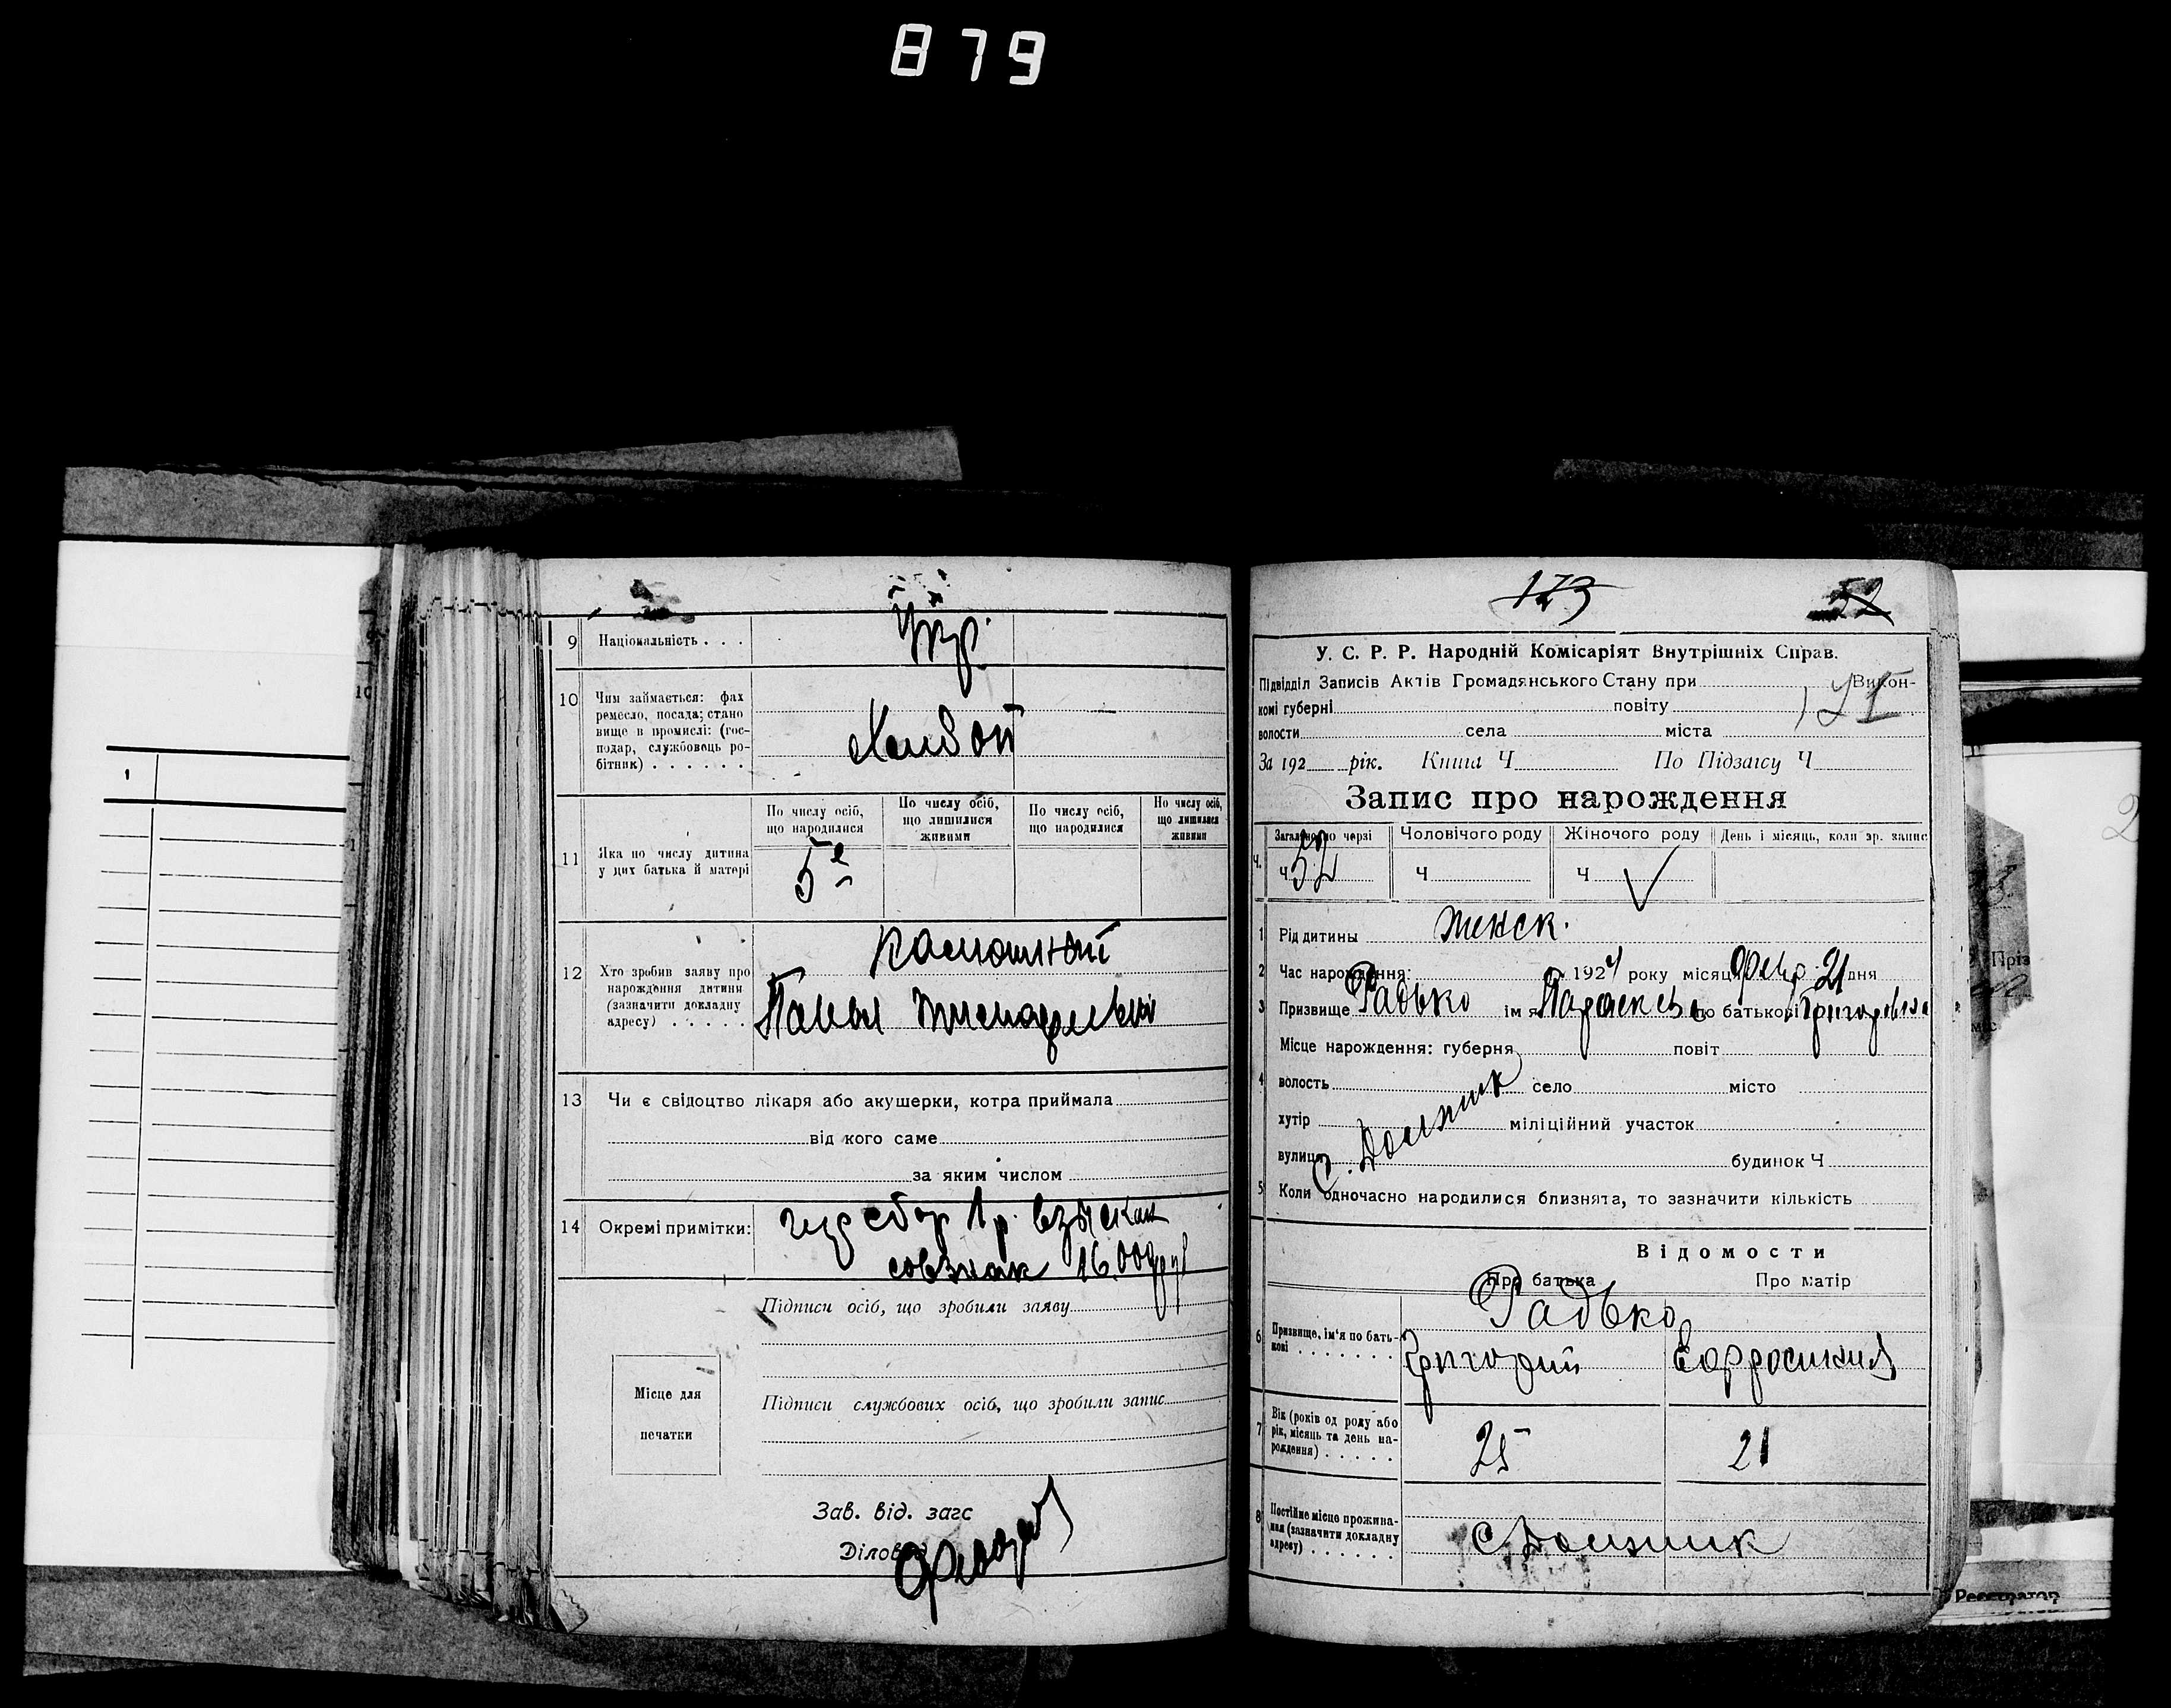 879
9 Національність . . .
Укр.
10 Чим займається: фах
ремесло, посада; стано
вище в промислі: (гос-
подар, службовець ро-
бітник) . . . . . .
Хлибоп
По числу осіб,
що народилися
По числу осіб,
що лишилися
живими
По числу осіб,
що народилися
По числу осіб,
що лишилися
живими
11 Яка по числу дитина
у цих батька й матері
5е
12 Хто зробив заяву про
нарождення дитини
(зазначити докладну
адресу) . . . . .
13 Чи є свідоцтво лікаря або акушерки, котра приймала
від кого саме
за яким числом
14 Окремі примітки:
сбор 1 р. взыскан
совзнак 16.000 руб
Підписи осіб, що зробили заяву
Місце для
печатки
Підписи службових осіб, що зробили запис
Зав. від. загс
Діловод
173
52
У. С. Р. Р. Народній Комісаріят Внутрішніх Справ.
Підвідділ Записів Актів Громадянського Стану при Викон-
комі губерні повіту
волости села міста
За 192 рік. Книга Ч По Підзагсу Ч
Запис про нарождення
Загально по черзі Чоловічого роду Жіночого роду День і місяць, коли зр. запис
Ч.
Ч 52 Ч Ч ✓
1 Рід дитины женск.
2 Час нарождення: 1924 року місяц 21 дня
3 Призвище Радько ім'я Параскева по батькові Григоровна
Місце нарождення: губерня повіт
4 волость село місто
хутір міліційний участок
вулиця будинок Ч
5 Коли одночасно народилися близнята, то зазначити кількість
Відомости
Про батька Про матір
6 Призвище, ім'я по бать-
кові . . . . . . .
Радько
Григорий
7 Вік (років од роду або
рік, місяць та день на-
рождення) . . . . .
25 21
8 Постійне місце прожива-
ння (зазначити докладну
адресу) . . . . . .
Реєстратор